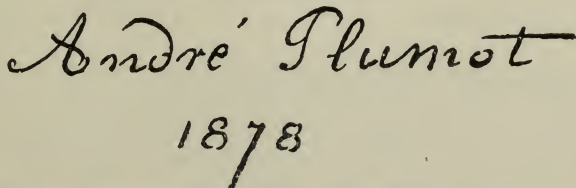 André Plumot
1878